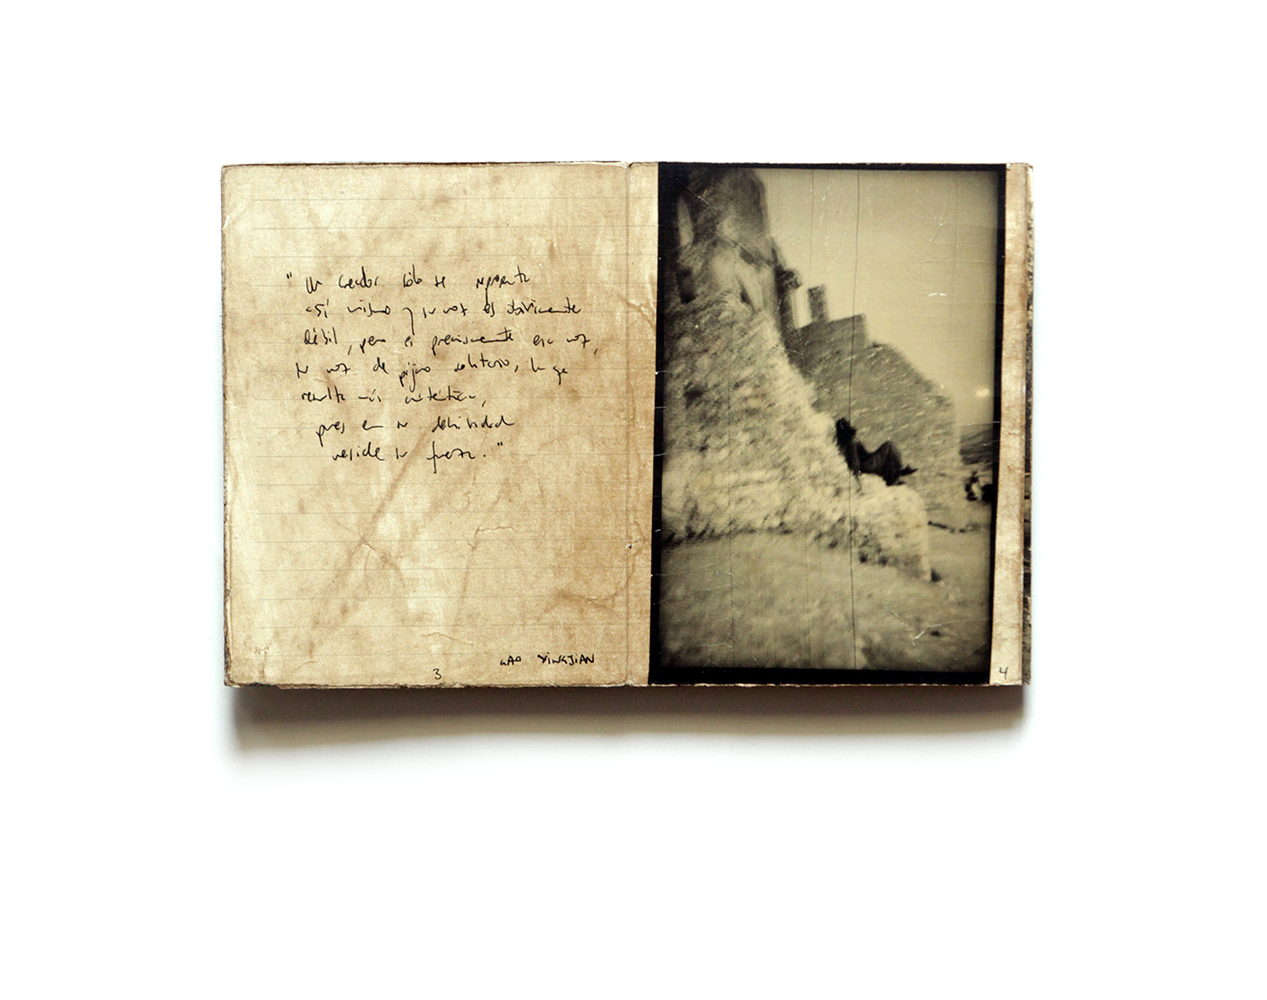 "Un creador sólo se representa
a sí mismo y su voz es obviamente
débil, pero es precisamente esa voz,
su voz de pájaro solitario, la que
resulta más auténtica,
pues en su debilidad
reside su fuerza."
GAO XINGJIAN
3
4